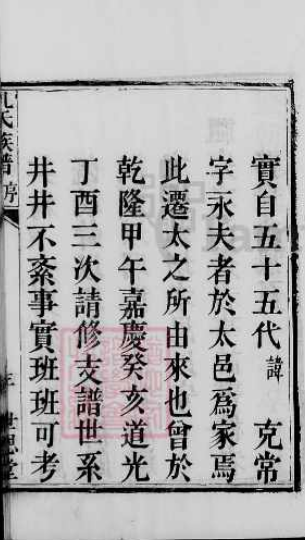 實自五十五代諱 克常
字永夫者於太邑爲家焉
此遷太之所由來也曾於
乾隆甲午嘉慶癸亥道光
丁酉三次請修支譜世系
井井不紊事實班班可考
孔氏族譜 序
世恩堂